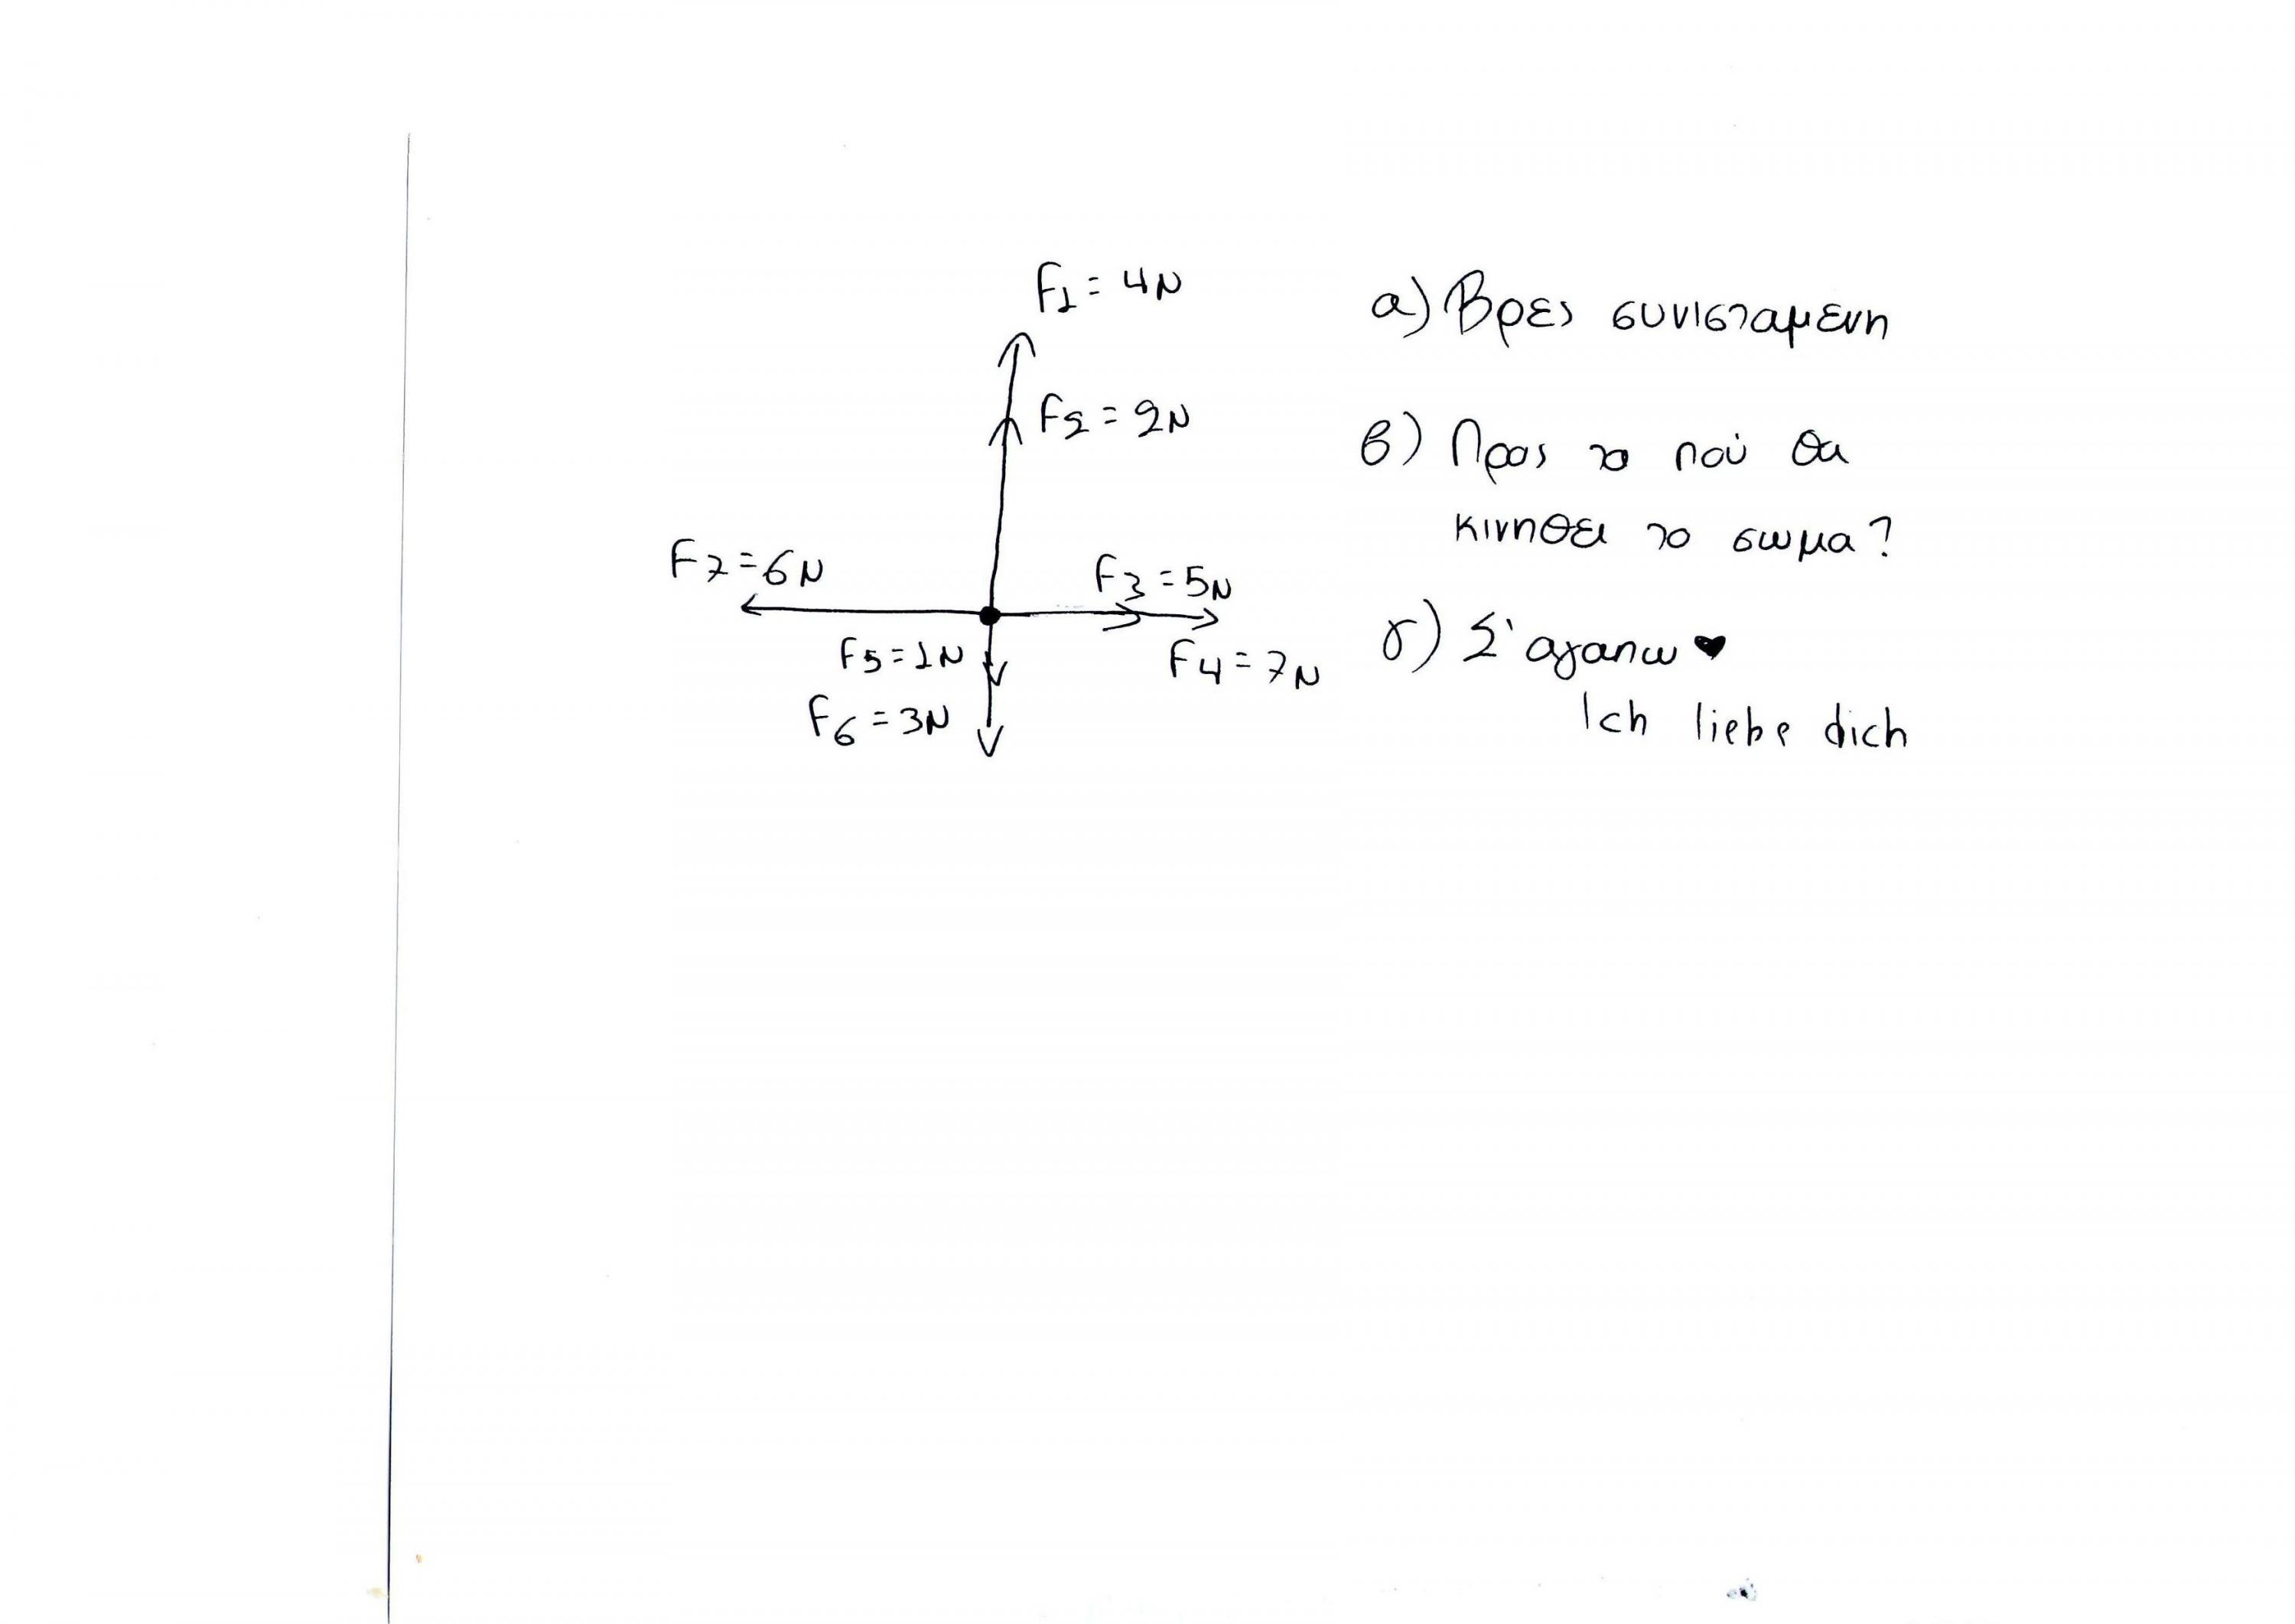 F1 = 4N
F2 = 2N
F7 = 6N
F3 = 5N
F5 = 1N
F4 = 7N
F6 = 3N
α) Βρες συνισταμενη
β) Προς το πού θα
κινηθει το σωμα?
γ) Σ'αγαπω ♥
Ich liebe dich